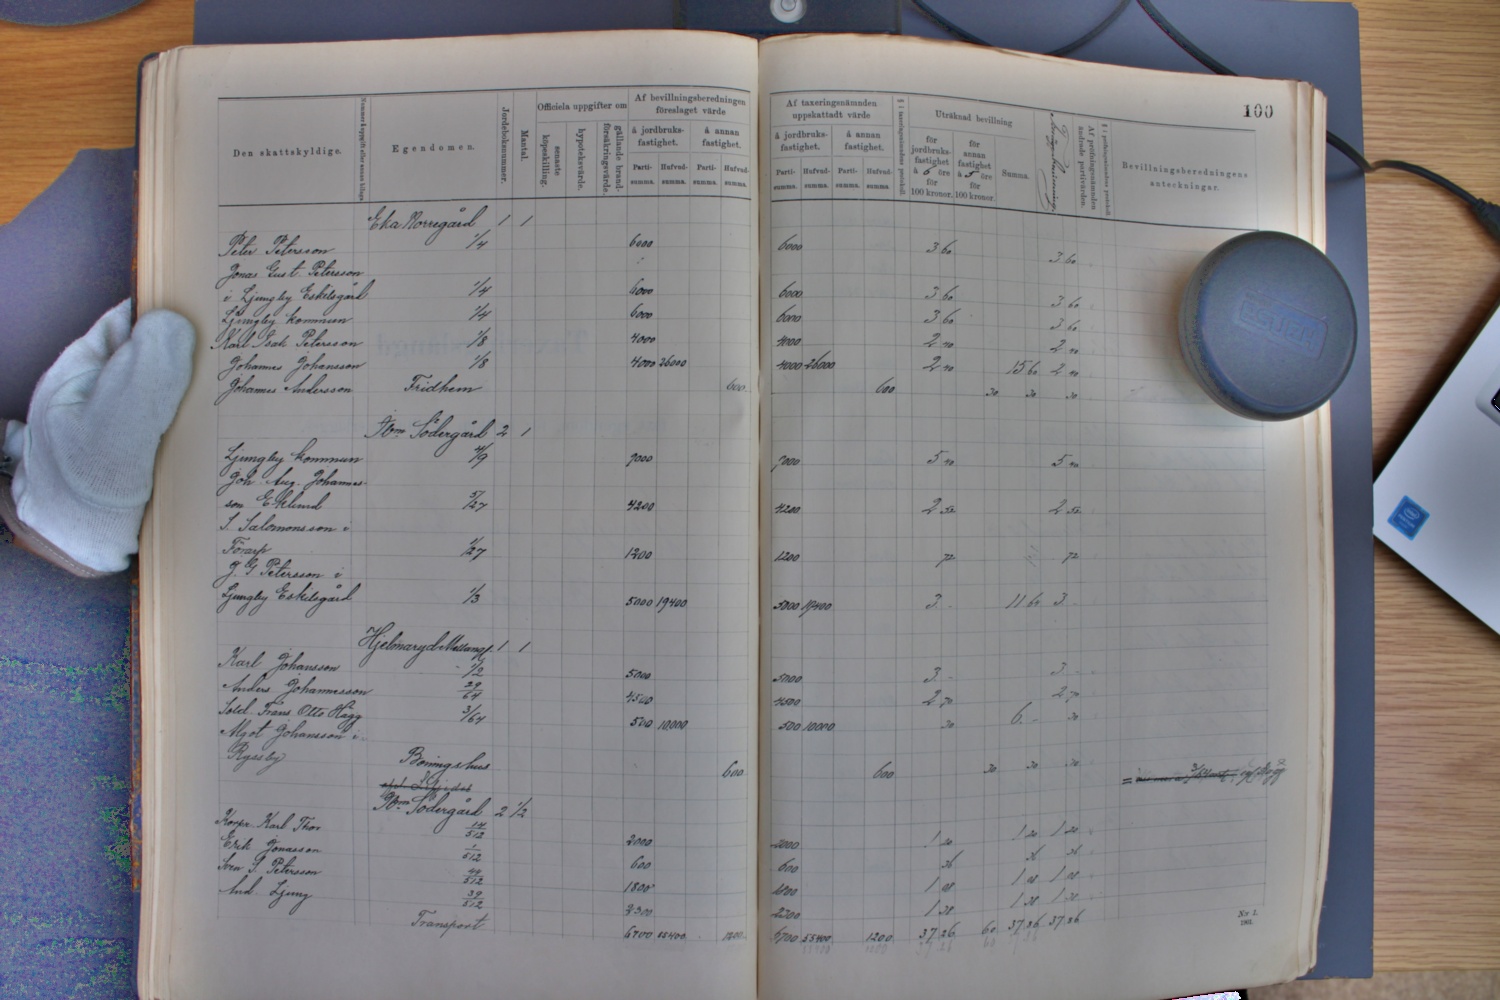 100
Den skattskyldige.
Egendomen.
Jordeboksnummer.
Mantal.
Officiela uppgifter om
senaste köpeskilling.
hypoteksvärde.
gällande brandförsäkringsvärde.
Af bevillningsberedningen föreslaget värde
å jordbruksfastighet.
å annan fastighet.
Partisumma. Hufvudsumma. Partisumma. Hufvudsumma.
Af taxeringsnämnden uppskattadt värde
å jordbruksfastighet.
å annan fastighet.
Partisumma. Hufvudsumma. Partisumma. Hufvudsumma.
Uträknad bevillning
för jordbruksfastighet à 6 öre för 100 kronor.
för annan fastighet à 5 öre för 100 kronor.
Summa.
Af prüfningsnämnden ändrade partivärden.
Bevillningsberedningens anteckningar.
Eka Norregård 1 1
Peter Petersson 1/4 6000 6000 3 60 3 60
Jonas Gust. Petersson
i Ljungby Eskilsgård 1/4 6000 6000 3 60 3 60
Ljungby kommun 1/4 6000 6000 3 60 3 60
Karl Isak Petersson 1/8 4000 4000 2 40 2 40
Johannes Johansson 1/8 4000 26000 4000 26000 2 40 15 60 2 40
Johannes Andersson Fridhem 600 600 30 30 30
Södergård 2 1
Ljungby kommun 4/9 9000 9000 5 40 5 40
Joh. Aug. Johannes-
son Eklund 5/27 4200 4200 2 52 2 52
S. Salomonsson i
Torarp 1/27 1200 1200 72 72
J. G Petersson i
Ljungby Eskilsgård 1/3 5000 19400 5000 19400 3 - 11 64 3 -
Hjelmaryd Mellang. 1 1
Karl Johansson 1/2 5000 5000 3 - 3 -
Anders Johannesson 29/64 4500 4500 2 70 2 70
Sold. Frans Otto Hägg 3/64 500 10000 500 10000 30 6 - 30
Algot Johansson i
Ryssby Boningshus 600 600 30 30 30
Södergård 2 1/2
Korpr. Karl Thor 14/512 2000 2000 1 20 1 20 1 20
Erik Jonasson 1/512 600 600 36 36 36
Sven P. Petersson 44/512 1800 1800 1 08 1 08 1 08
And. Ljung 39/512 2300 2300 1 38 1 38 1 38
Transport 55400 1200 55400 1200 37 26 60 37 86 37 86
No 1.
1901.